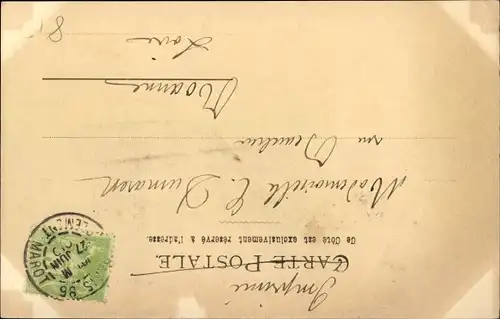 Imprimé
CARTE POSTALE.
Ce Côté est exclusivement réservé à l'adresse.
Mademoiselle E. Dumarest
rue Beaulieu
Roanne
Loire
27
JUIN